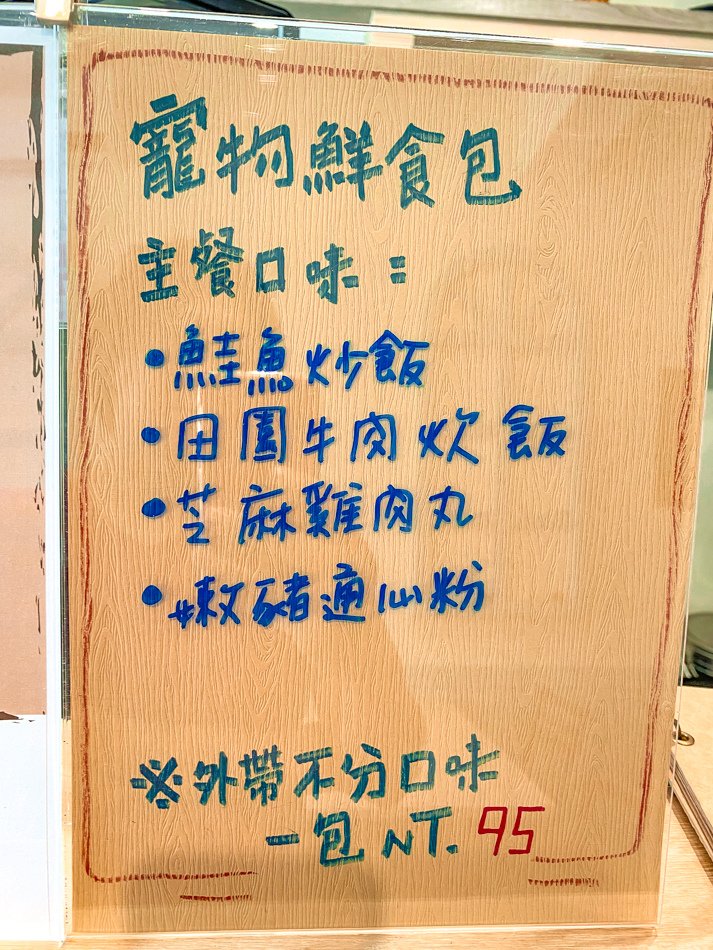 寵物鮮食包
主餐口味：
•鮭魚炒飯
•田園牛肉炊飯
•芝麻雞肉丸
•嫩豬通心粉
※外帶不分口味
一包NT. 95